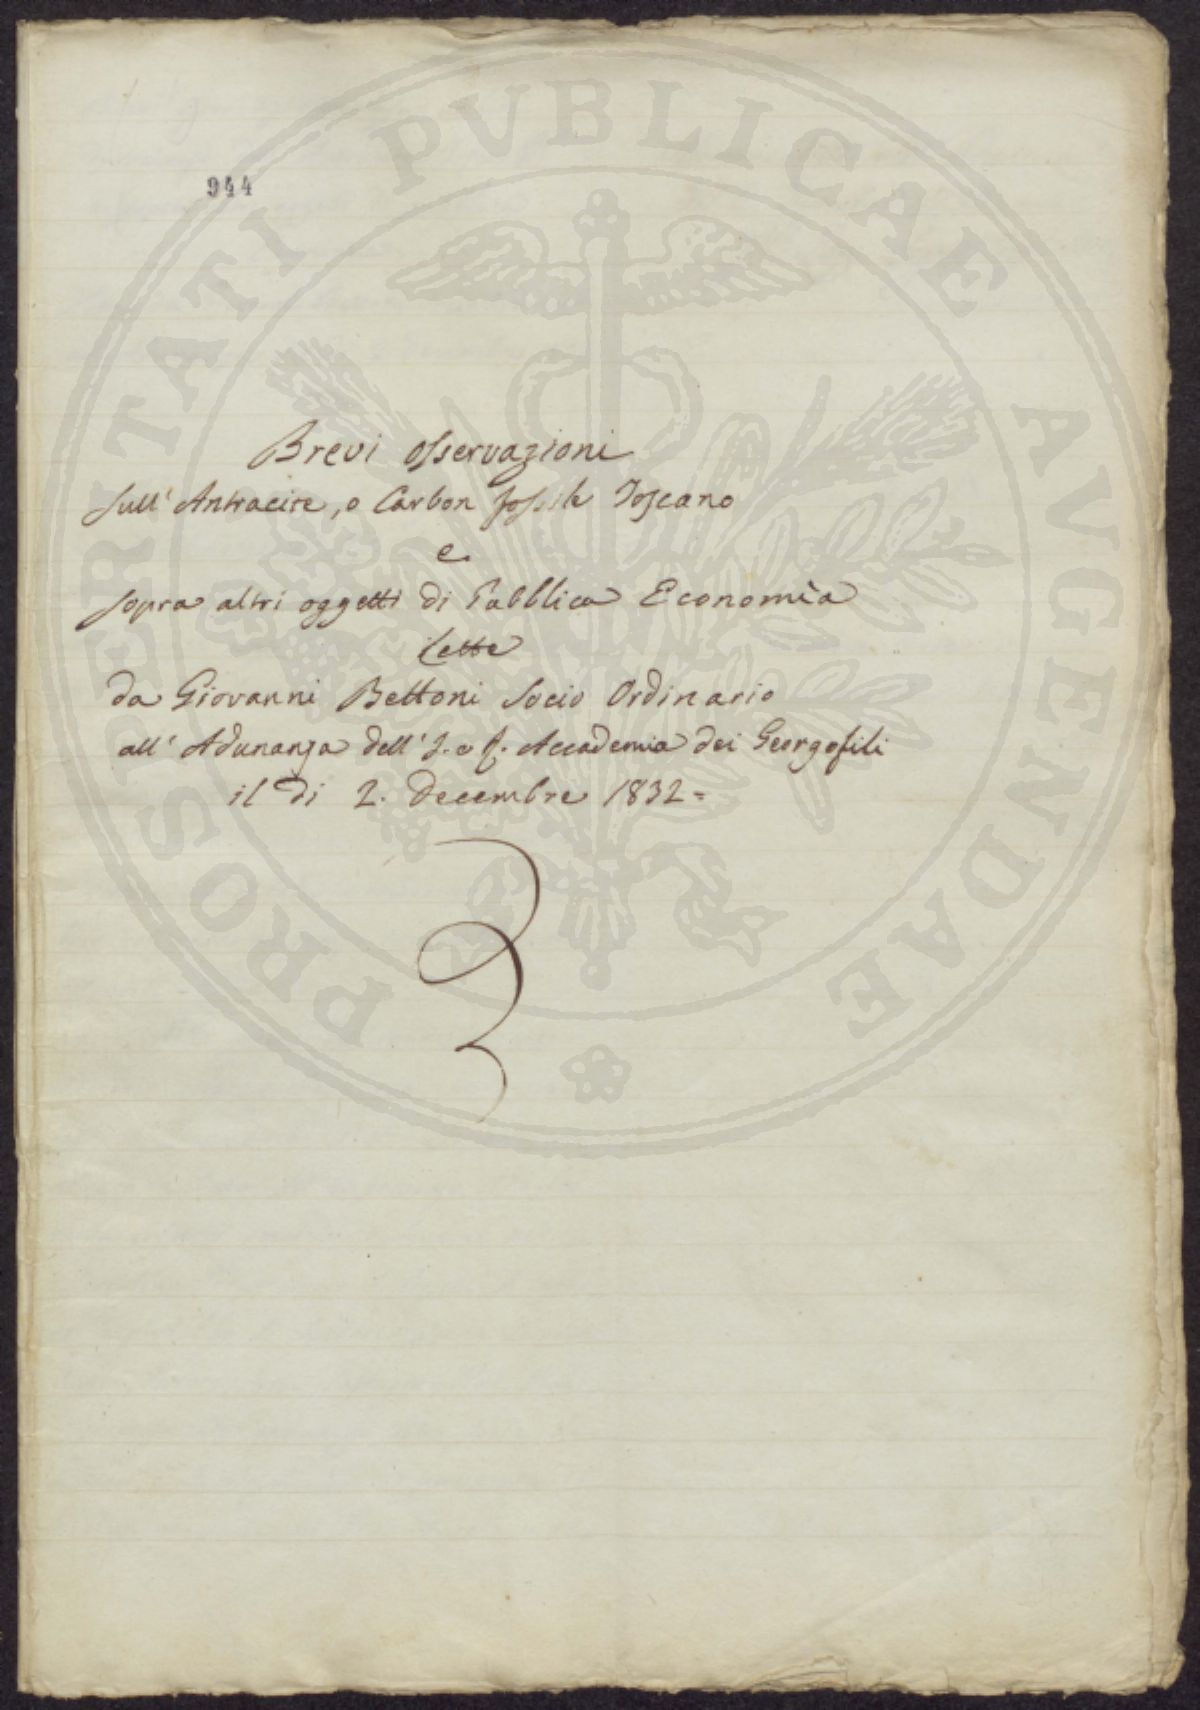 944
Brevi osservazioni
sull' Antracite, o Carbon fossile Toscano
e
sopra altri oggetti di Pubblica Economìa
Lette
da Giovanni Bettoni Socio Ordinario
all' Adunanza dell' I. e R. Accademia dei Georgofili
il dì 2. Decembre 1832=
PROSPERITATI PVBLICAE AVGENDAE